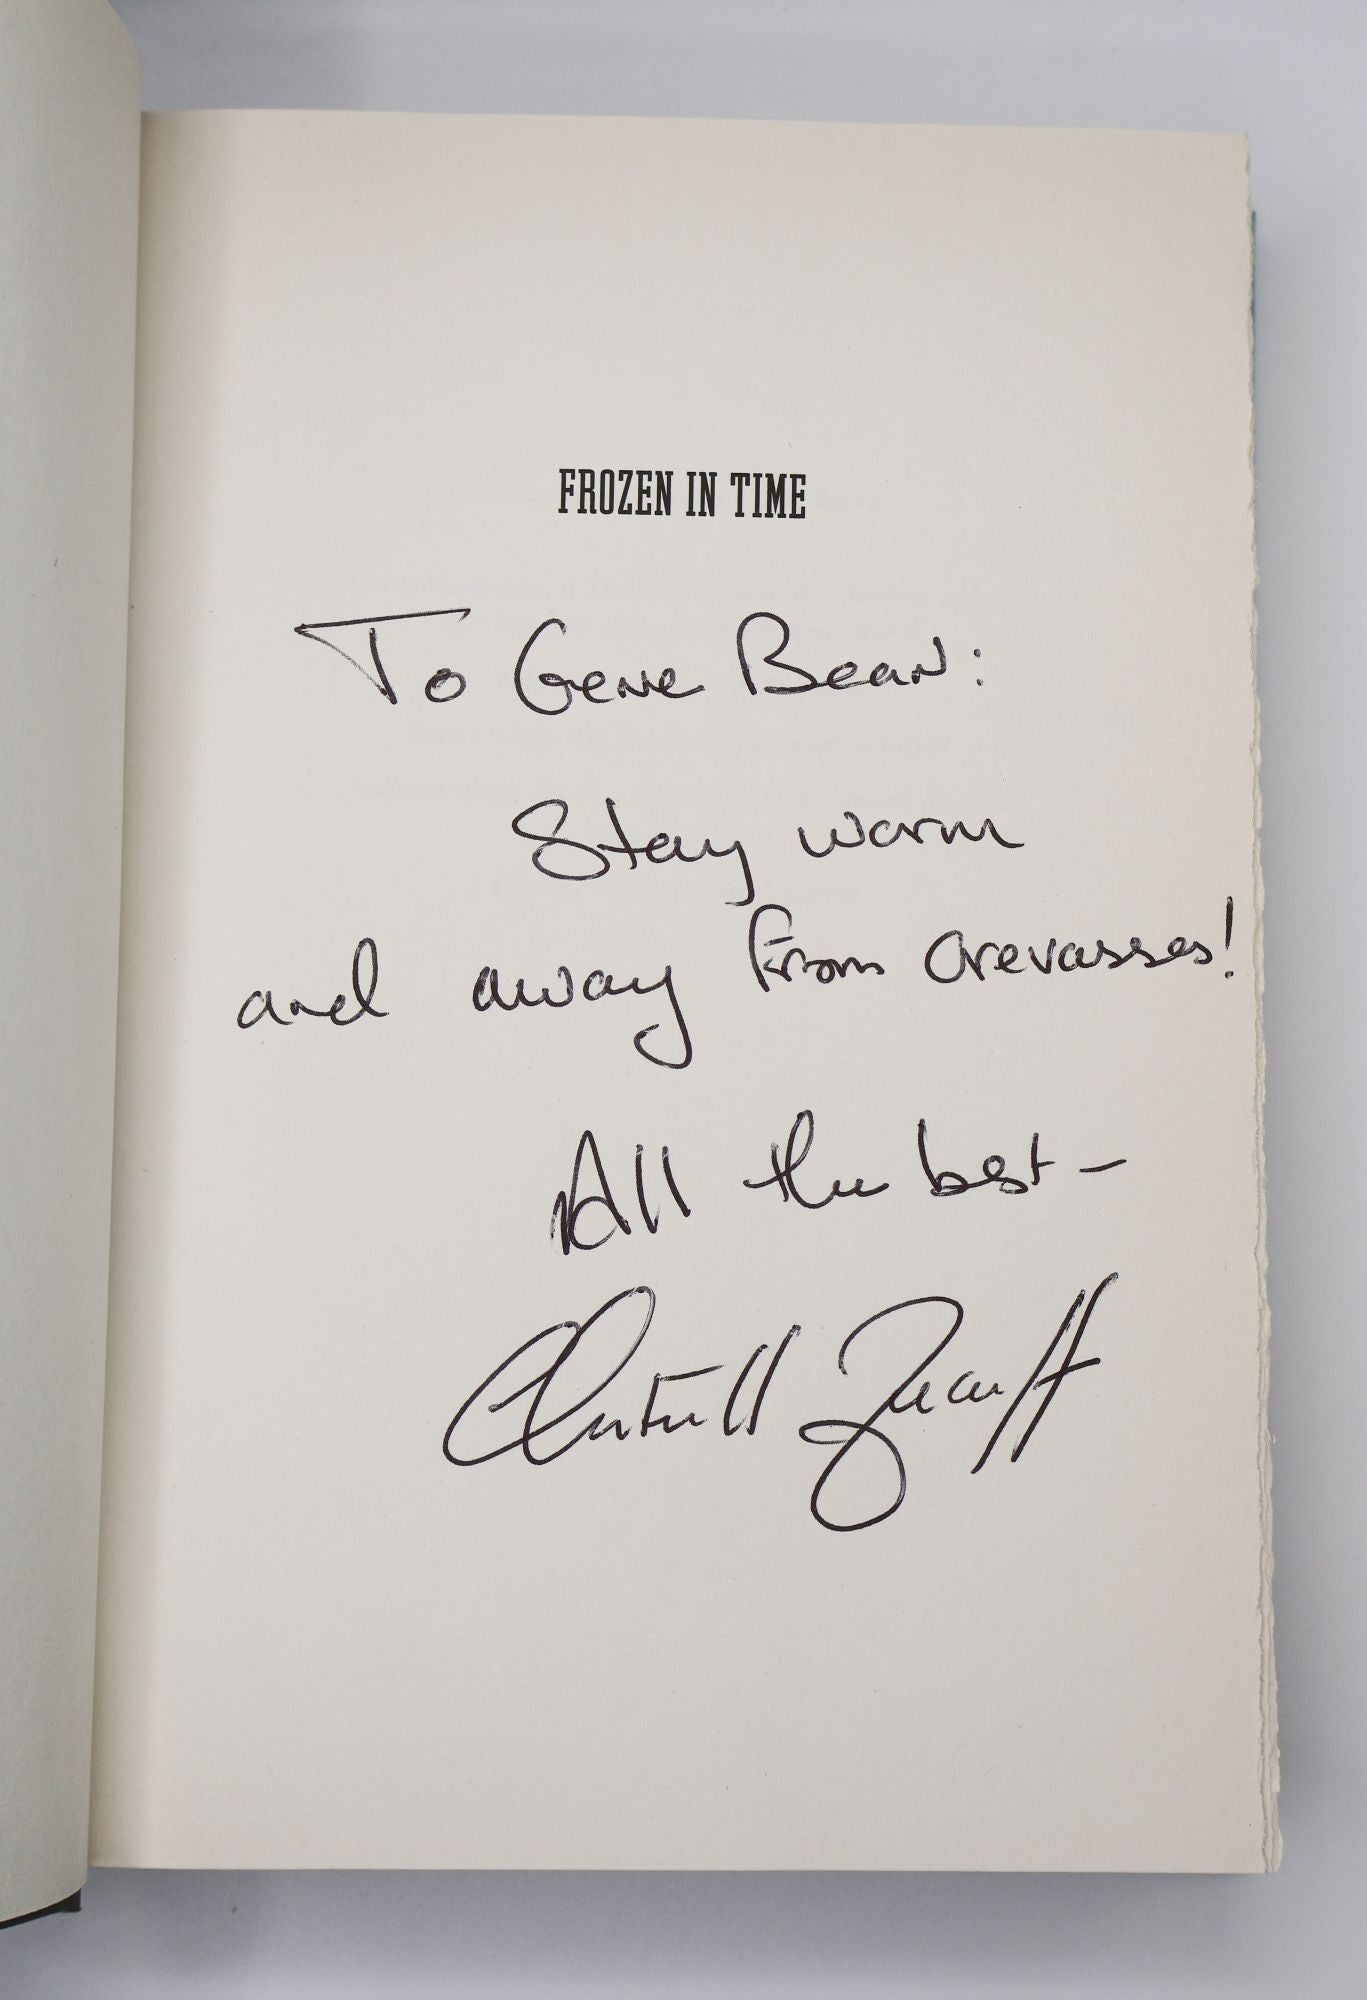 FROZEN IN TIME
To Gene Bean:
Stay warm
and away from crevasses!
All the best –
Mitchell Zuckoff